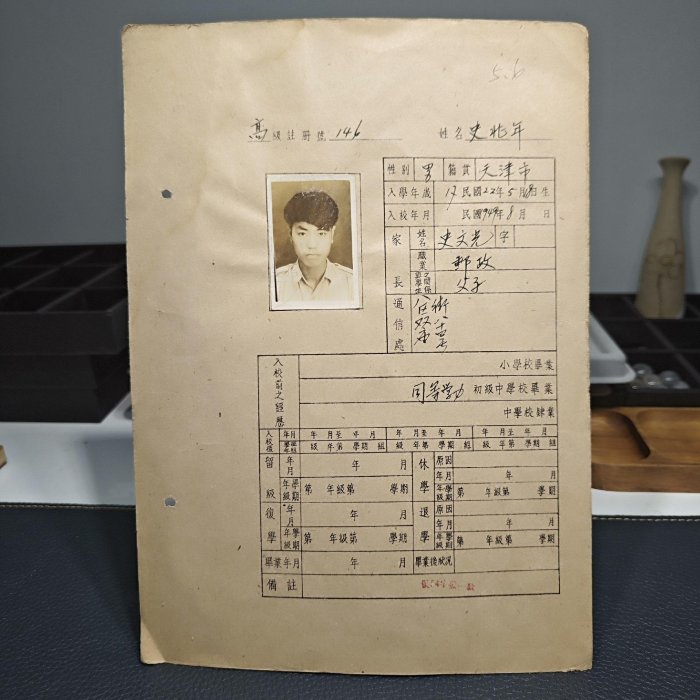 5.6
高級註冊號 146 姓名 史兆年
性別 男 籍貫 天津市
入學年歲 17 民國22年5月 日生
入校年月 民國 年8月 日
家長
姓名 史文光 字
職業 郵政
與學生之關係 父子
通信處
入校前之經歷
小學校畢業
同等學力 初級中學校畢業
中學校肄業
入校後 年月 年 月至 年 月 年 月至 年 月 年 月至 年 月
學年班組 級 年第 學期 組 級 年第 學期 組 級 年第 學期 組
留級 年月 年 月 休學 原因
年月 年 月
年級學期 第 年級第 學期 年級學期 第 年級第 學期
復學 年月 年 月 退學 原因
年月 年 月
年級學期 第 年級第 學期 年級學期 第 年級第 學期
畢業年月 年 月 畢業後狀況
備註